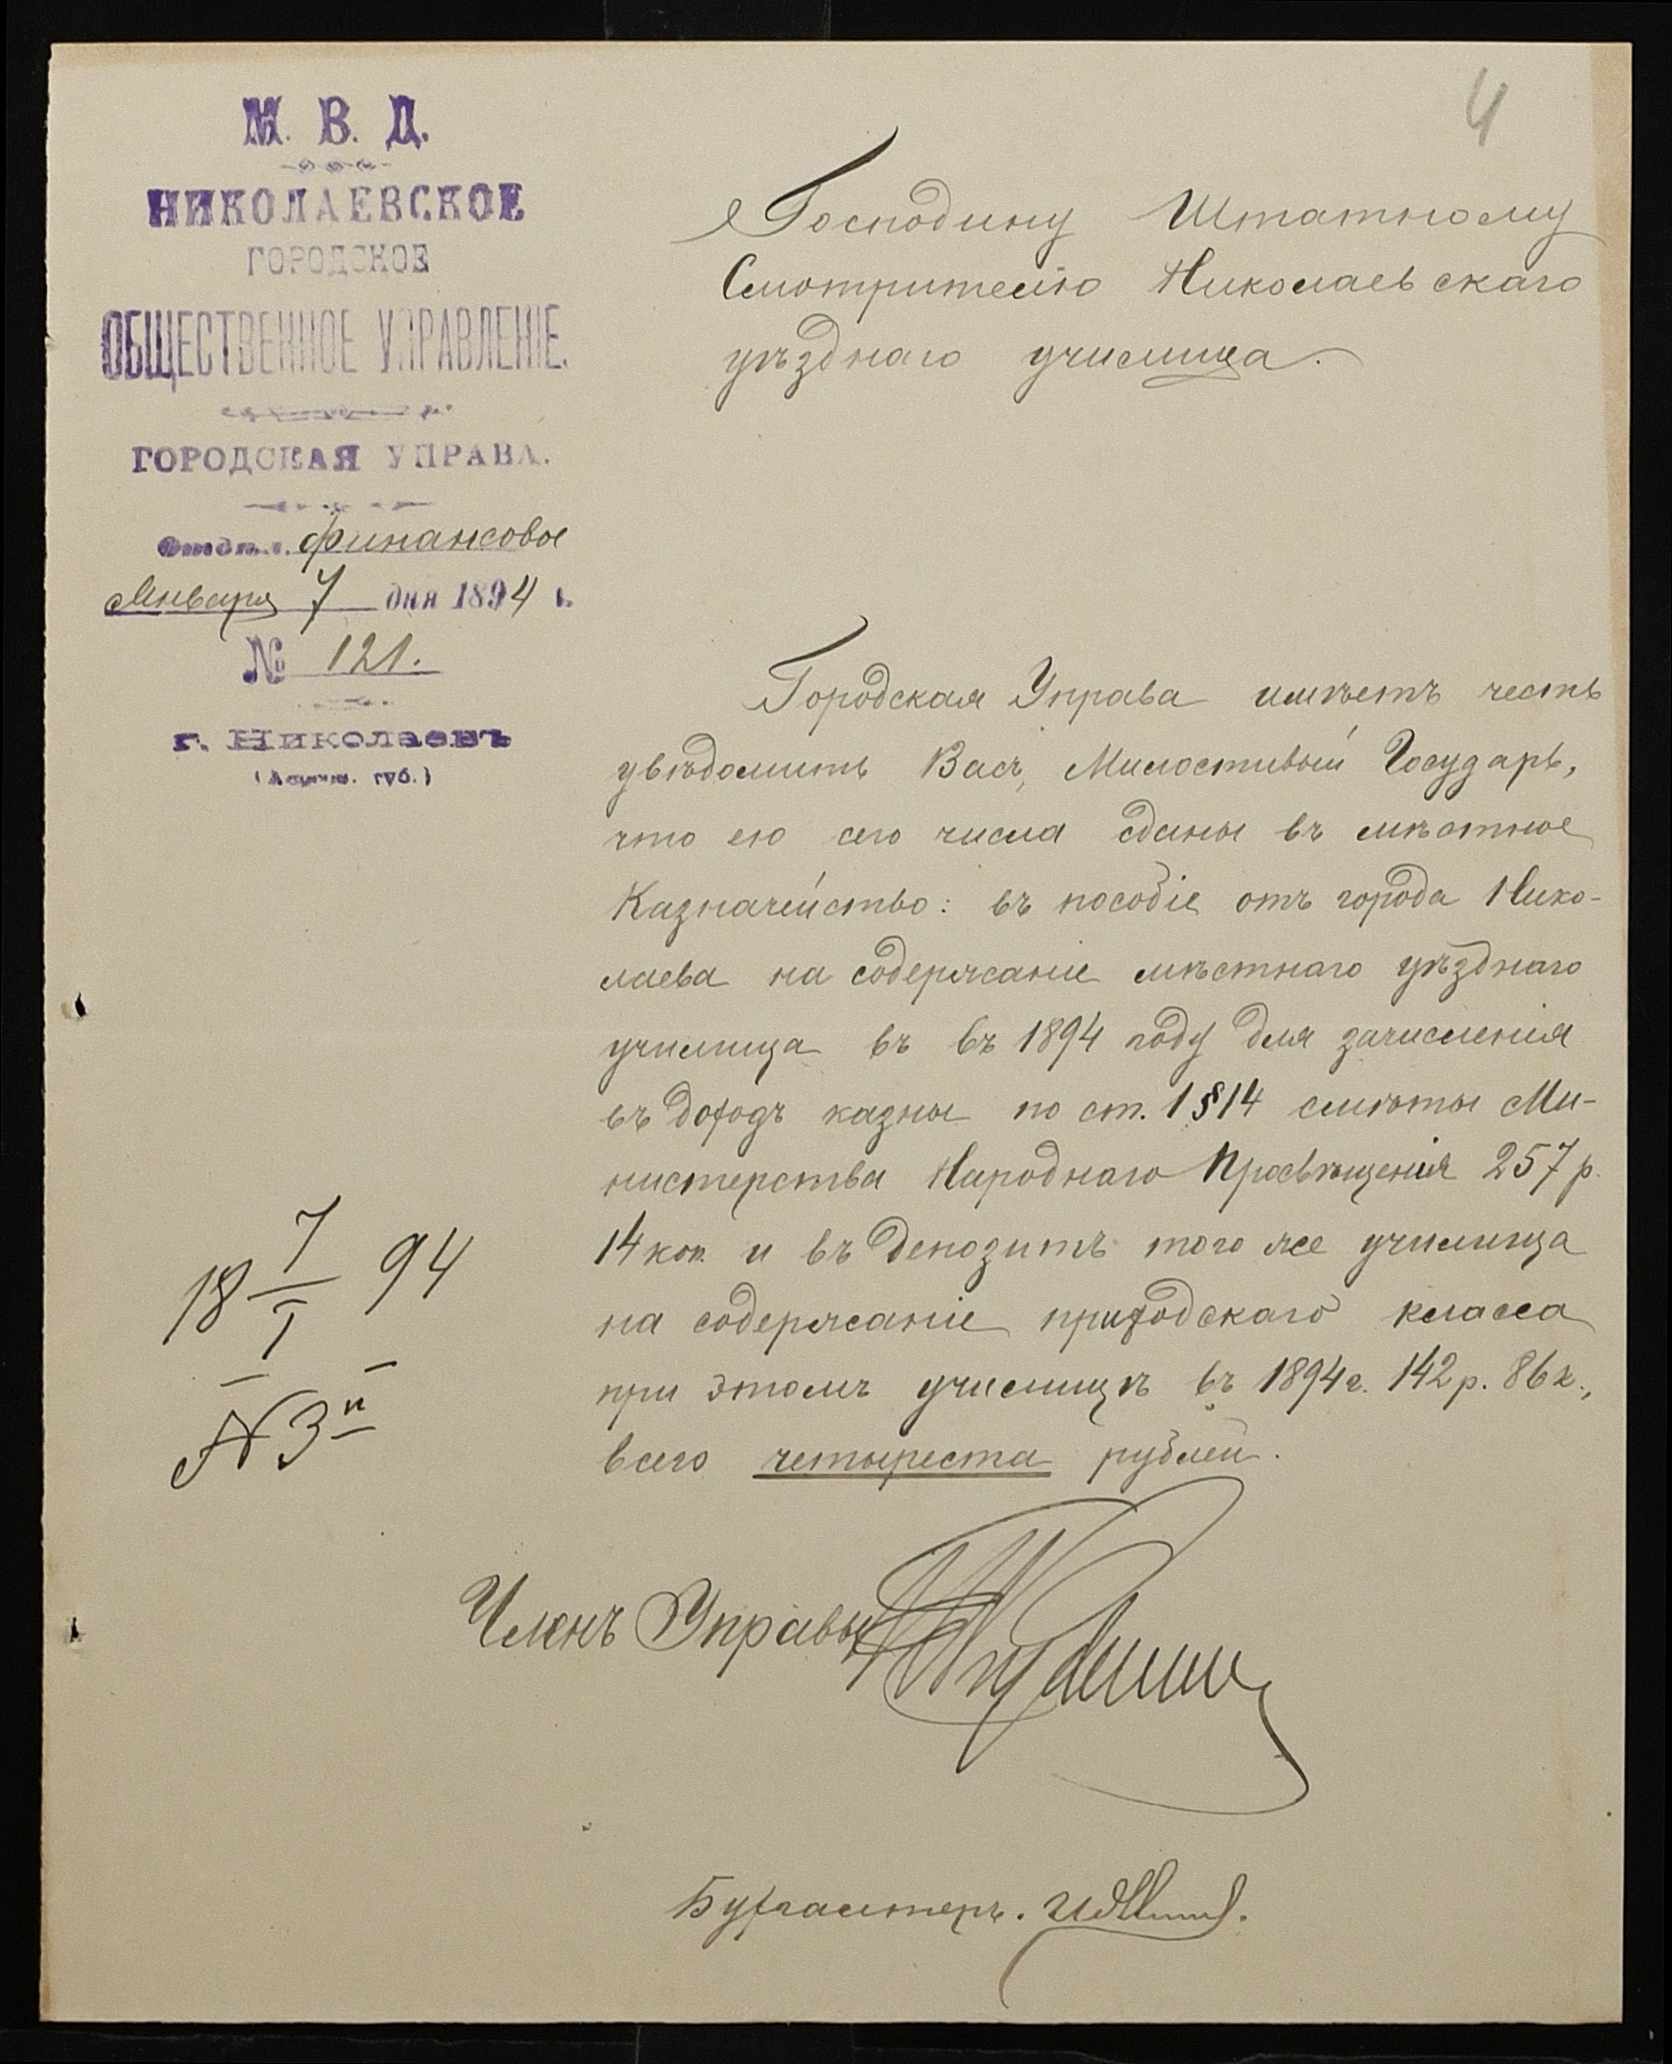 4
М. В. Д.
НИКОЛАЕВСКОЕ
ГОРОДСКОЕ
ОБЩЕСТВЕННОЕ УПРАВЛЕНІЕ.
ГОРОДСКАЯ УПРАВА.
финансовое
Января 7 дня 1894 г.
№ 121.
г. Николаевъ
губ.)
Господину Штатному
Смотрителю Николаевскаго
уѣзднаго училища.
Городская Управа имѣетъ честь
увѣдомить Васъ, Милостивый Государь,
что ею сего числа сданы въ мѣстное
Казначейство: въ пособіе отъ города Нико-
лаева на содержаніе мѣстнаго уѣзднаго
училища въ въ 1894 году для зачисленія
въ доходъ казны по ст. 1 § 14 смѣты Ми-
нистерства Народнаго Просвѣщенія 257 р.
14 коп. и въ депозитъ того же училища
на содержаніе приходскаго класса
при этомъ училищѣ въ 1894 г. 142 р. 86 к.,
всего четыреста рублей.
18 7/I 94
№ 3
Членъ Управы
Бухгалтеръ.